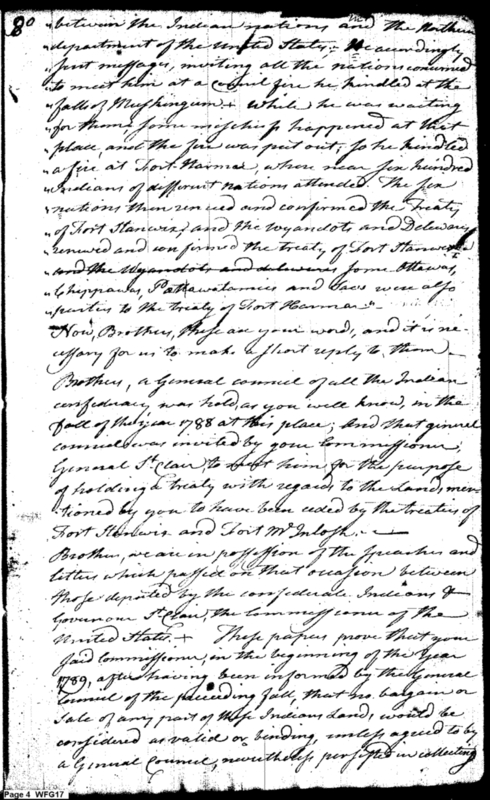 80
"between the Indian nations and the Northern
"department of the United States, He accordingly
"sent messages, inviting all the nations concerned
"to meet him at a Council fire he kindled at the
"falls of Muskingum + While he was waiting
"for them, some mischief happened at that
"place, and the fire was put out; so he kindled
"a fire at Fort Harmar, where near six hundred
"Indians of different nations attended. The six
"nations then renewed and confirmed the Treaty
"of Fort Stanwix; and the Wyandots and Delawares
"renewed and confirmed the treaty of Fort
"and the Wyandots and delawares some Ottawas,
"Chippawas, Pattawatamies and Sacs were also
"parties to the treaty of Fort Harmar".
Now, Brothers, these are your words, and it is ne-
cessary for us to make a short reply to them
Brothers, a General council of all the Indian
confederacy was held, as you well know, in the
fall of the year 1788 at this place; And that general
council was invited by your Commissioner,
General St. Clair to meet him for the purpose
of holding a treaty with regard to the Lands, men-
tioned by you to have been ceded by the treaties of
Fort Stanwix and Fort McIntosh.
Brother, we are in possession of the Speeches and
letters which passed on that occasion between
those deputed by the confederate Indians &
Governour St. Clair, the Commissioner of the
United States. + These papers prove that your
said commissioner, in the beginning of the Year
1789, after having been informed by the General
Council of the preceeding fall, that no bargain or
Sale of any part of these Indians Land, would be
considered as valid or binding, unless agreed to by
a General Council, nevertheless persisted in collecting
Page 4 WFG17